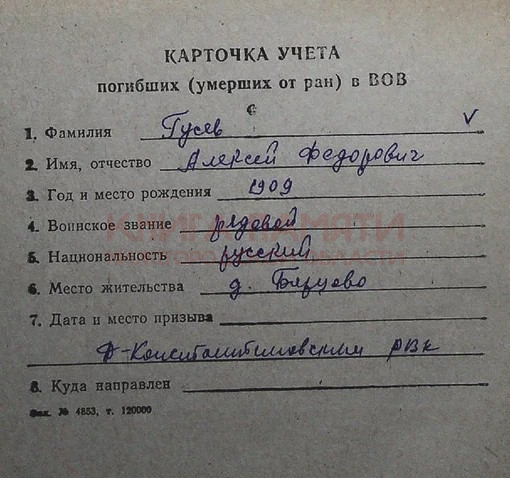 КАРТОЧКА УЧЕТА
погибших (умерших от ран) в ВОВ
1. Фамилия Гусев
2. Имя, отчество Алексей Федорович
3. Год и место рождения 1909
4. Воинское звание рядовой
КНИГА ПАМЯТИ
5. Национальность русский
6. Место жительства д. Бярцово
7. Дата и место призыва
Д-Константиновским РВК
8. Куда направлен
Зак. № 4853, т. 120000